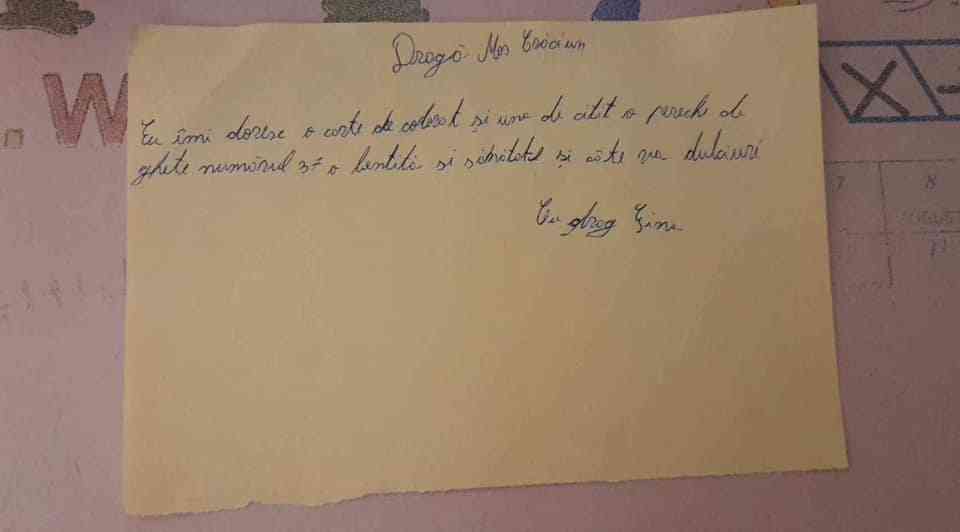 Dragă Moș Crăciun
Eu îmi doresc o carte de colorat și una de citit o pereche de
ghete numărul 37 o bentită și sănătate și câte va dulciuri
Cu drag
W
X
7 8